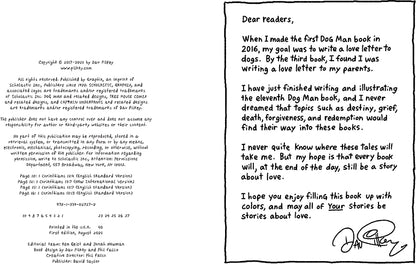 Copyright © 2017-2023 by Dav Pilkey
www.pilkey.com
All rights reserved. Published by Graphix, an imprint of
Scholastic Inc., Publishers since 1920. SCHOLASTIC, GRAPHIX, and
associated logos are trademarks and/or registered trademarks
of Scholastic Inc. DOG MAN and related designs, TREE HOUSE COMIX
and related designs, and CAPTAIN UNDERPANTS and related designs
are trademarks and/or registered trademarks of Dav Pilkey.
The publisher does not have any control over and does not assume any
responsibility for author or third-party websites or their content.
No part of this publication may be reproduced, stored in a
retrieval system, or transmitted in any form or by any means,
electronic, mechanical, photocopying, recording, or otherwise, without
written permission of the publisher. For information regarding
permission, write to Scholastic Inc., Attention: Permissions
Department, 557 Broadway, New York, NY 10012.
Printed in the U.S.A.
Editorial team: Ken Geist and Jonah Newman
Book design by Dav Pilkey and Phil Falco
Creative Director: Phil Falco
Publisher: David Saylor
Dear readers,
When I made the first Dog Man book in
2016, my goal was to write a love letter to
dogs. By the third book, I found I was
writing a love letter to my parents.
I have just finished writing and illustrating
the eleventh Dog Man book, and I never
dreamed that topics such as destiny, grief,
death, forgiveness, and redemption would
find their way into these books.
I never quite know where these tales will
take me. But my hope is that every book
will, at the end of the day, still be a story
about love.
I hope you enjoy filling this book up with
colors, and may all of Your stories be
stories about love.